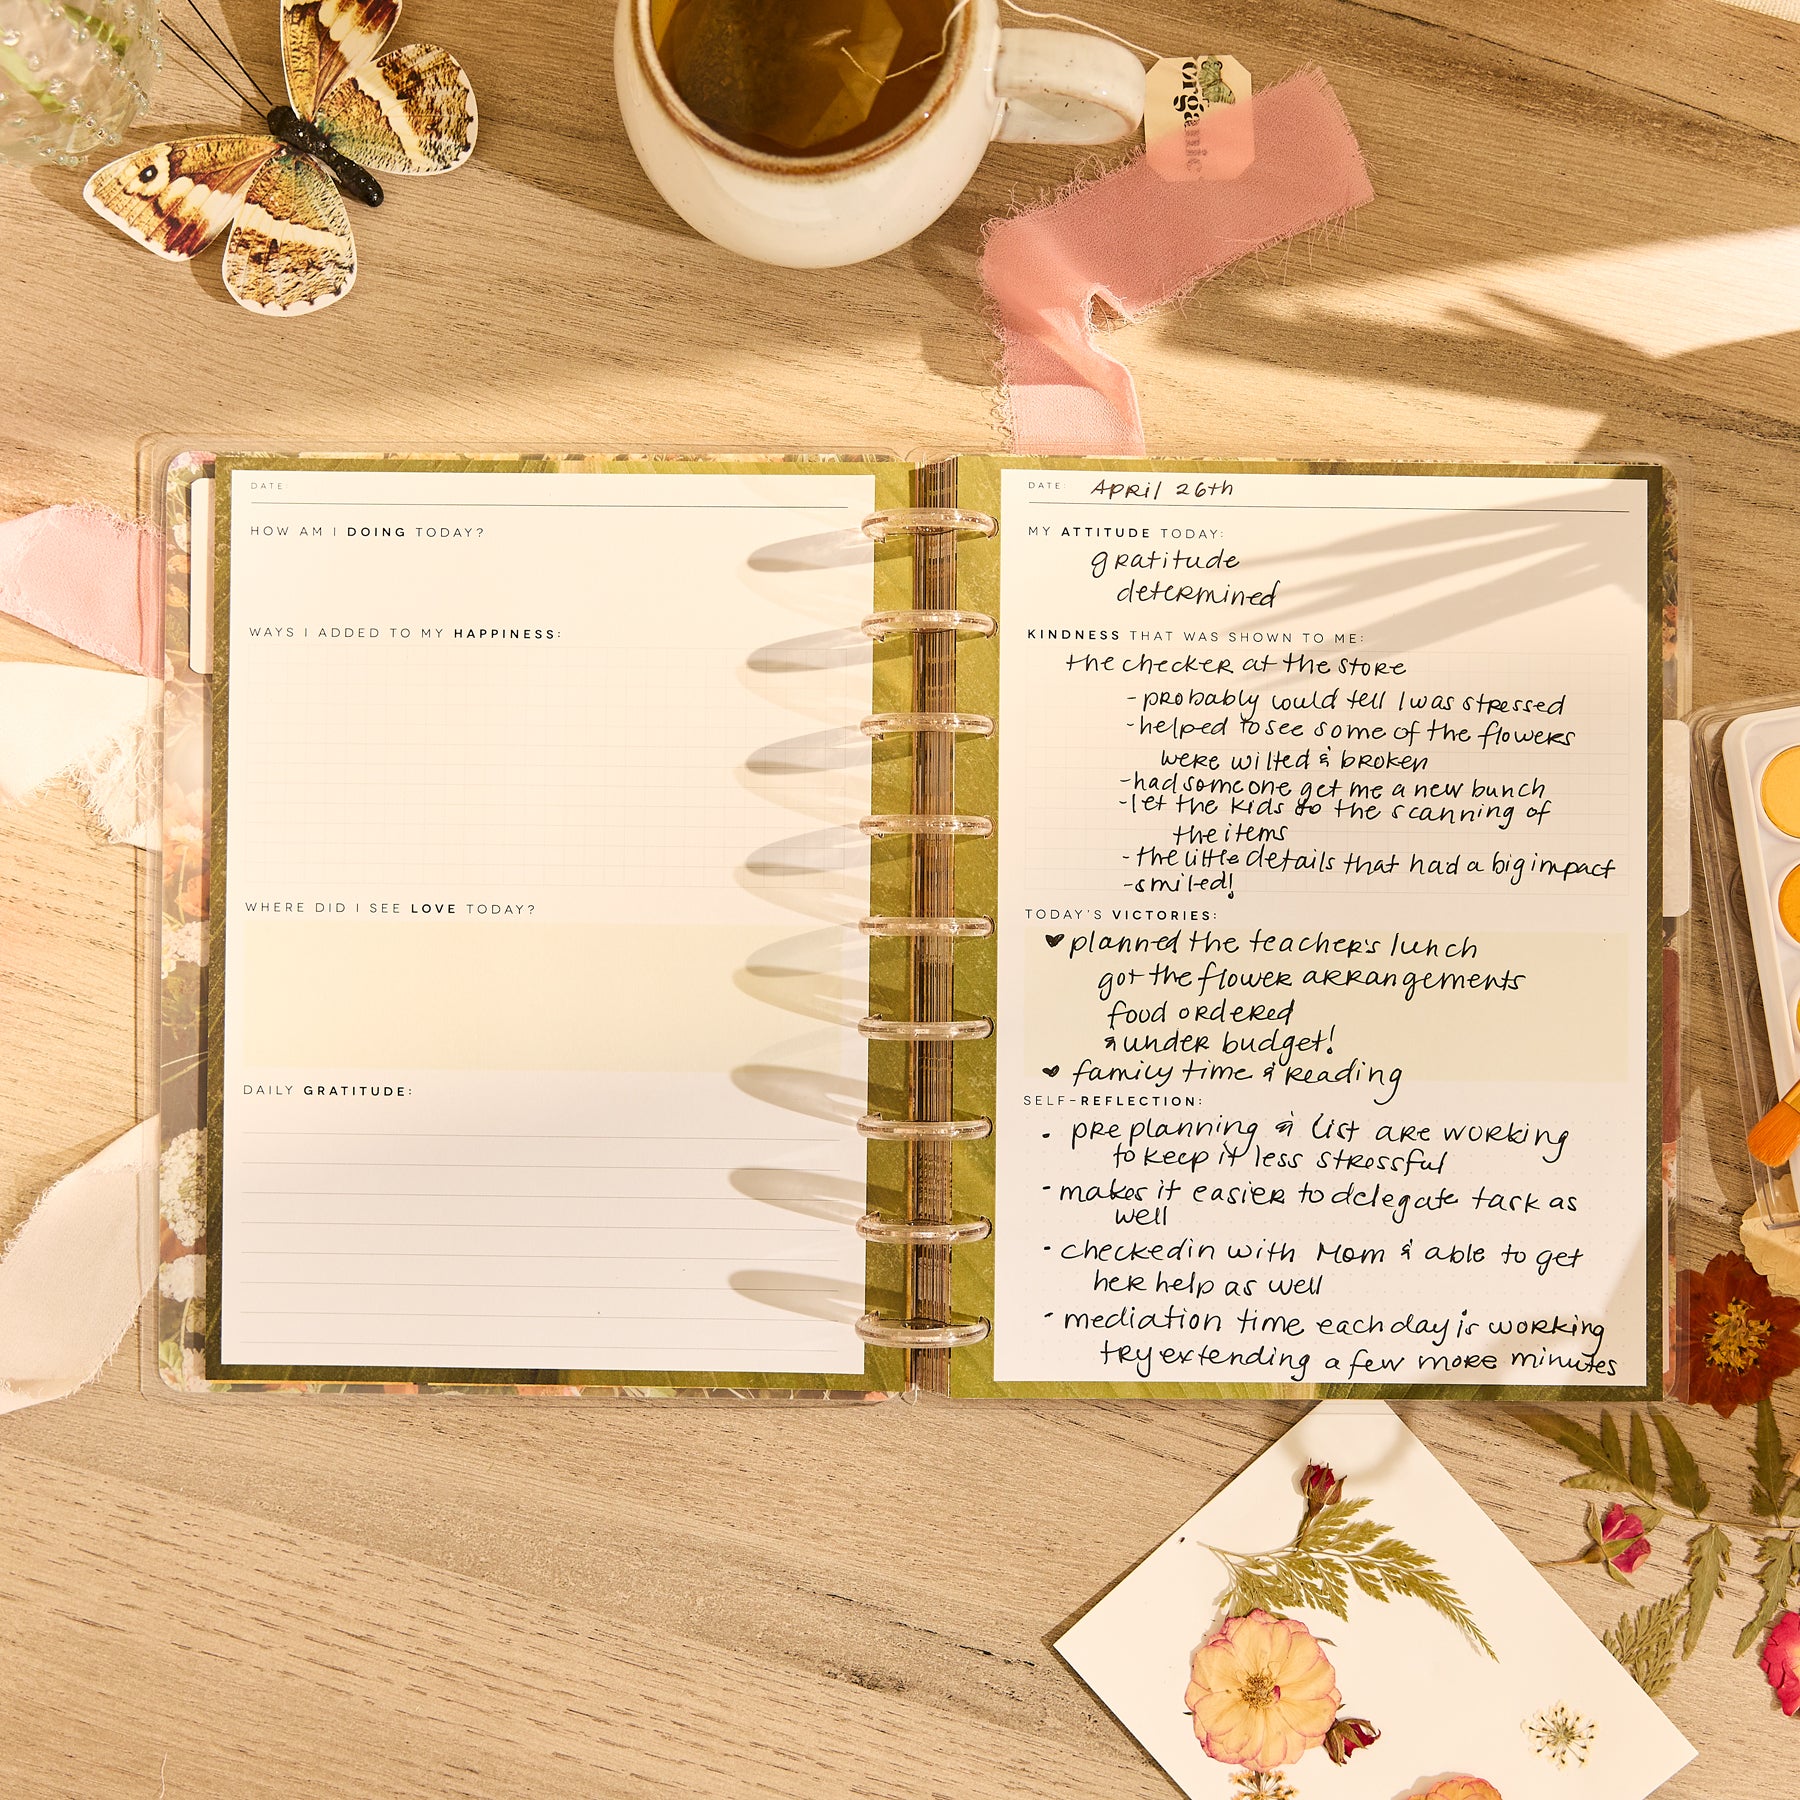 organic
DATE:
HOW AM I DOING TODAY?
WAYS I ADDED TO MY HAPPINESS:
WHERE DID I SEE LOVE TODAY?
DAILY GRATITUDE:
DATE: April 26th
MY ATTITUDE TODAY:
gratitude
determined
KINDNESS THAT WAS SHOWN TO ME:
the checker at the store
- probably could tell I was stressed
- helped to see some of the flowers
were wilted & broken
- had someone get me a new bunch
- let the kids do the scanning of
the items
- the little details that had a big impact
- smiled!
TODAY'S VICTORIES:
♥ planned the teacher's lunch
got the flower arrangements
food ordered
& under budget!
♥ family time & reading
SELF-REFLECTION:
• pre planning & list are working
to keep it less stressful
- makes it easier to delegate task as
well
• checked in with Mom & able to get
her help as well
- mediation time each day is working
try extending a few more minutes